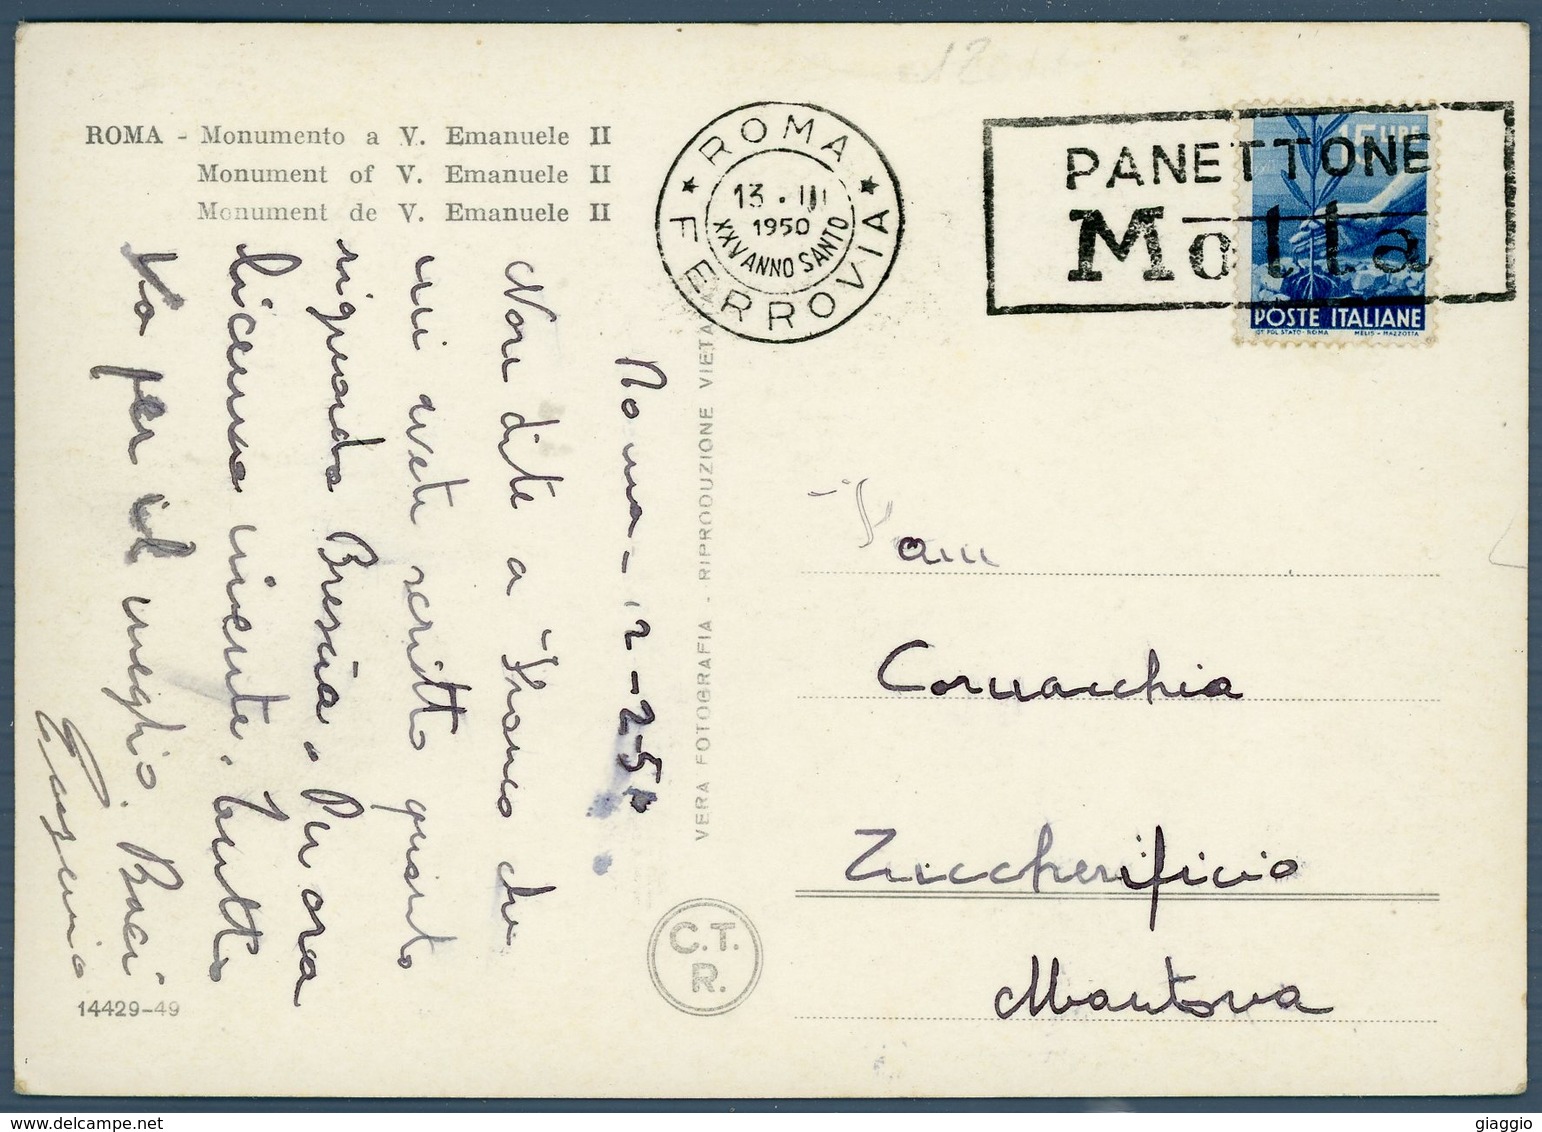 ROMA - Monumento a V. Emanuele II
Monument of V. Emanuele II
Monument de V. Emanuele II
ROMA
13 . III
1950
XXV ANNO SANTO
FERROVIA
PANETTONE
Motta
15 LIRE
POSTE ITALIANE
IST. POL. STATO - ROMA MELIS - MAZZOTTA
Roma - 2-25
Non dite a Franco che
mi avete scritto quanto
riguarda Brescia. Per ora
diceva niente. Tanto
Va per il meglio. Baci
Eugenio
14429-49
VERA FOTOGRAFIA - RIPRODUZIONE VIETATA
C.T.
R.
Fam
Cornacchia
Zuccherificio
Mantova
giaggio